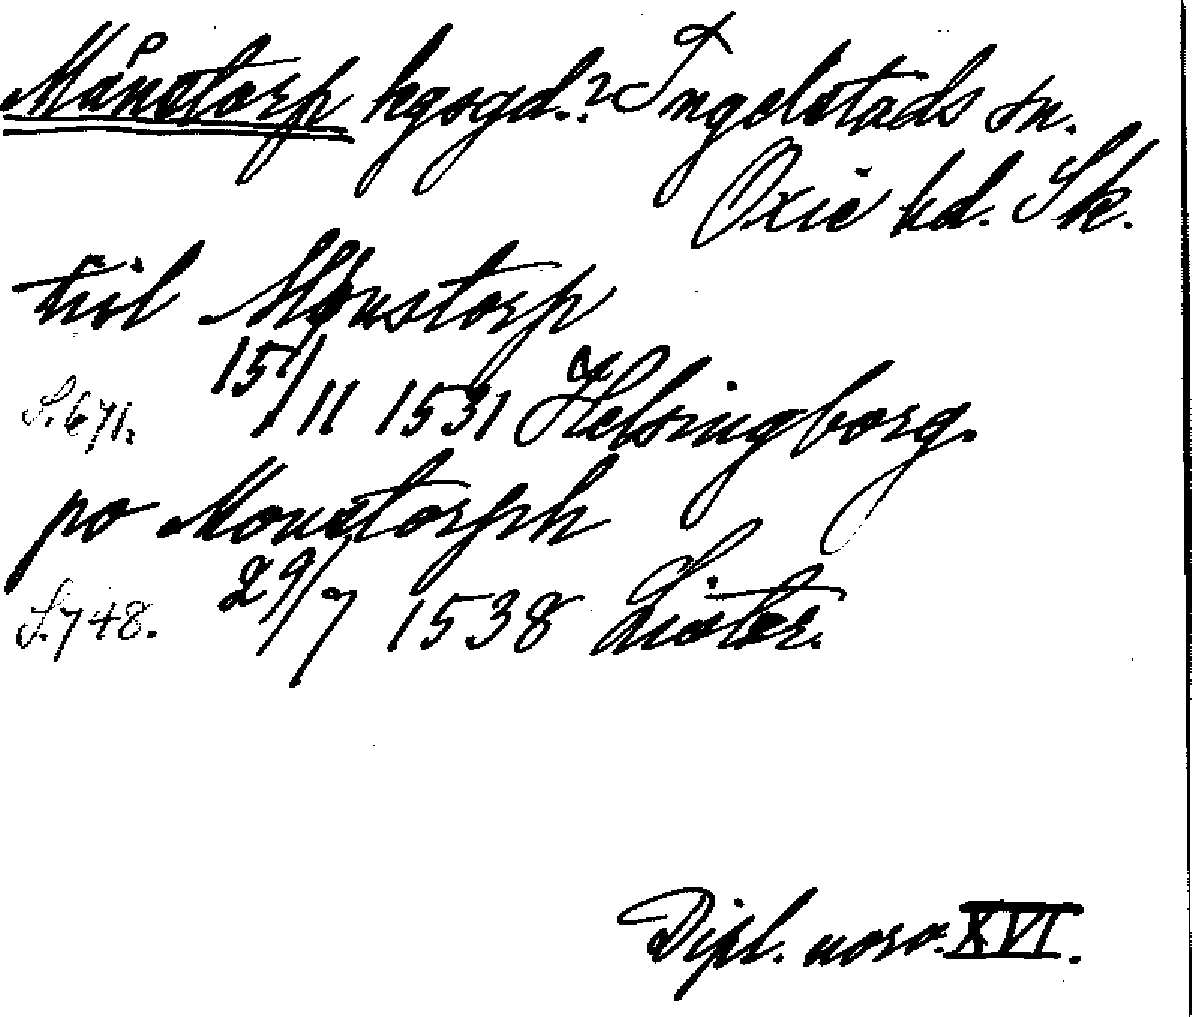 Månstorp kgsgd.? Ingelstads sn.
Oxie hd. Sk.
tiil Mønstorp
15/11 1531 Helsingborg.
S. 671.
po Monstorph
29/7 1538 Lister.
S. 748.
Dipl. norv. XVI.